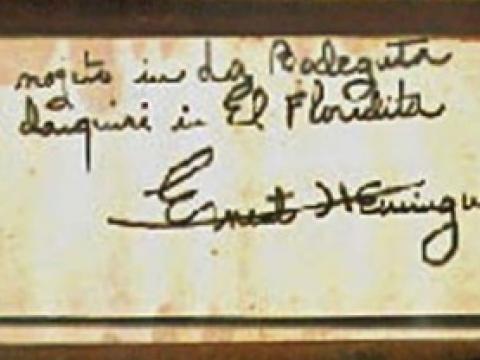 mojito in La Bodeguita
daiquiri in El Floridita
Ernest Hemingw